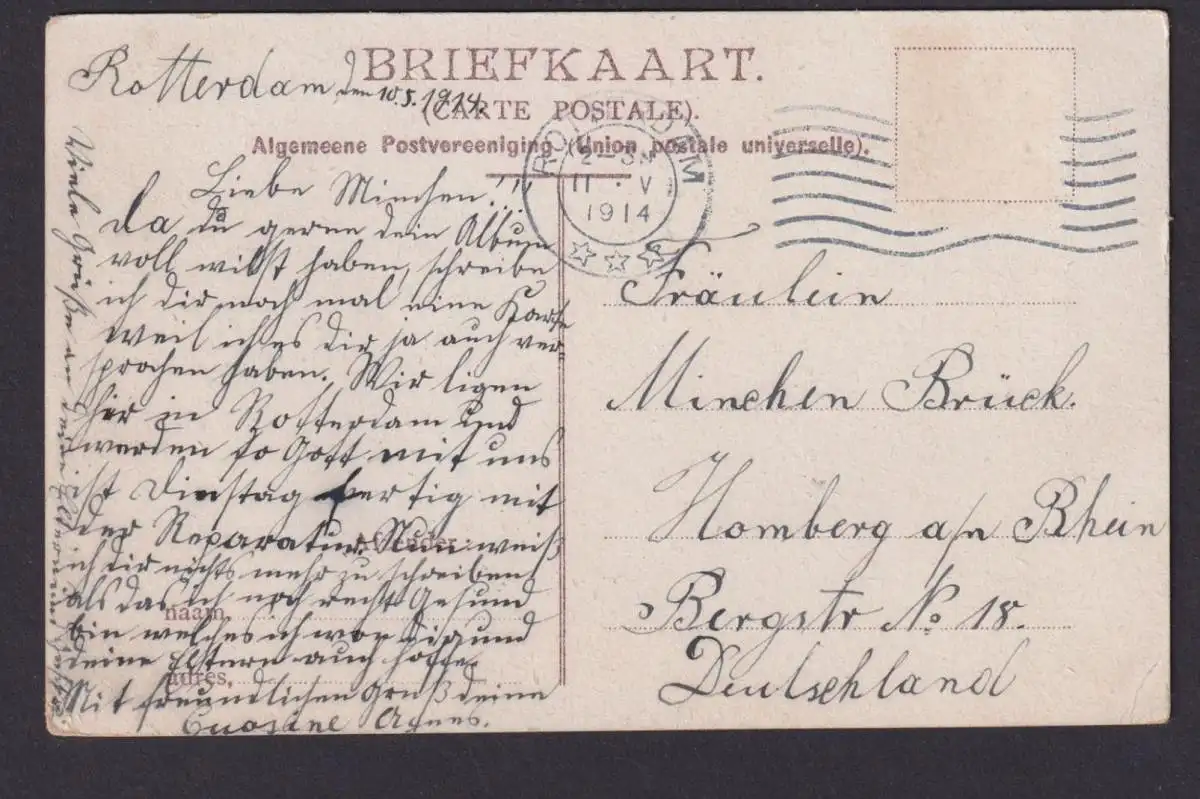 BRIEFKAART.
(CARTE POSTALE).
Algemeene Postvereeniging (Union postale universelle).
Rotterdam, den 10.5.1914.
Liebe Minchen!!!
Da du gerne dein Album
voll willst haben, schreibe
ich dir noch mal eine Karte
weil ich es dir ja auch ver-
sprochen haben. Wir ligen
hir in Rotterdam und
werden so Gott mit uns
ist Dinstag fertig mit
der Reparatur. Nun weiß
ich dir nichts mehr zu schreiben
als das ich noch recht Gesund
bin welches ich von dig und
deine Eltern auch hoffe.
Mit freundlichen Gruß deine
Cuosine Agnes.
Viele Grüße an deine
Afzender:
naam,
adres,
ROTTERDAM
2-3N
11 V
1914
Fräulein
Minchen Brück.
Homberg a/n Rhein
Bergstr No 18.
Deutschland